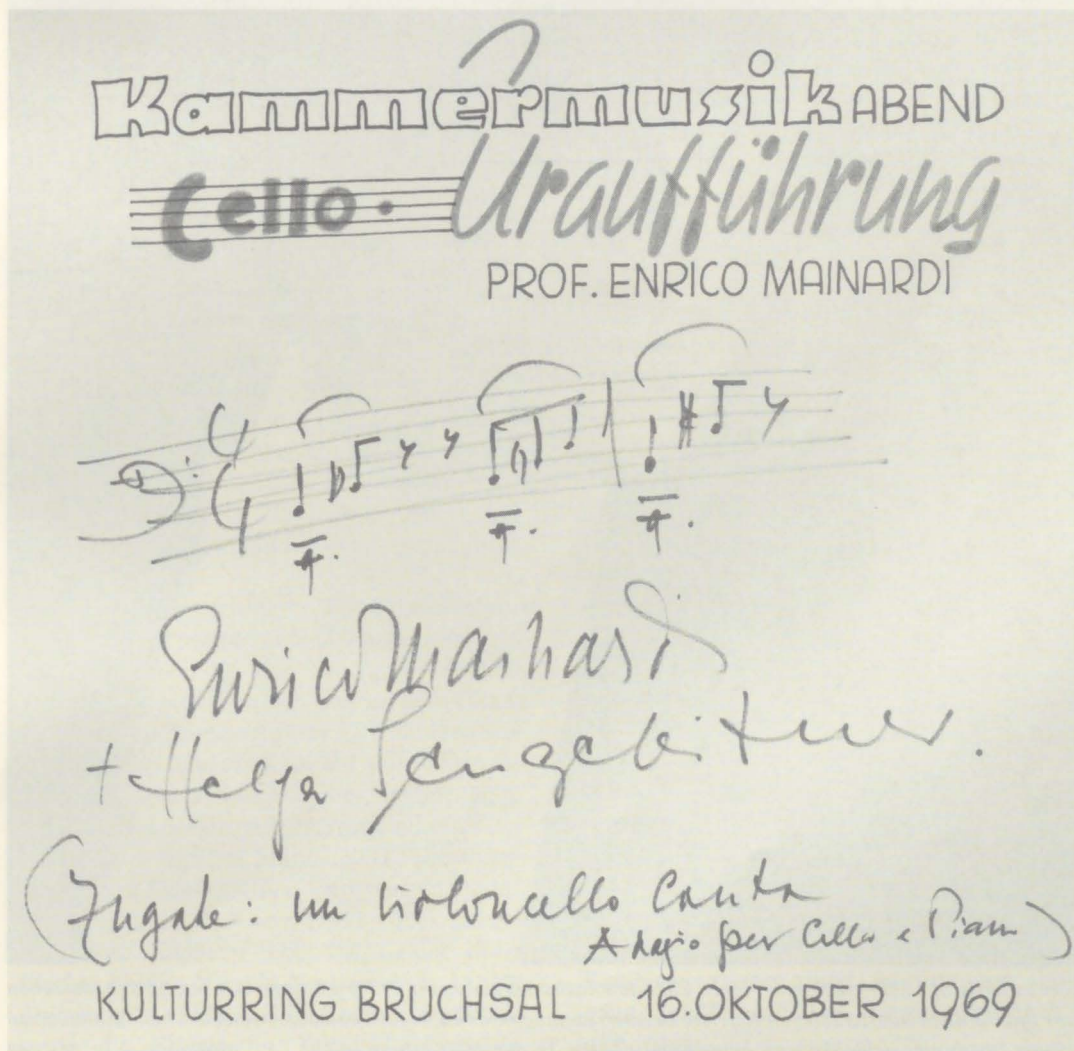 Kammermusik ABEND
Cello · Uraufführung
PROF. ENRICO MAINARDI
Enrico Mainardi
+ Helga
(Zugabe: un violoncello canta
Adagio per Cello e Piano)
KULTURRING BRUCHSAL 16. OKTOBER 1969